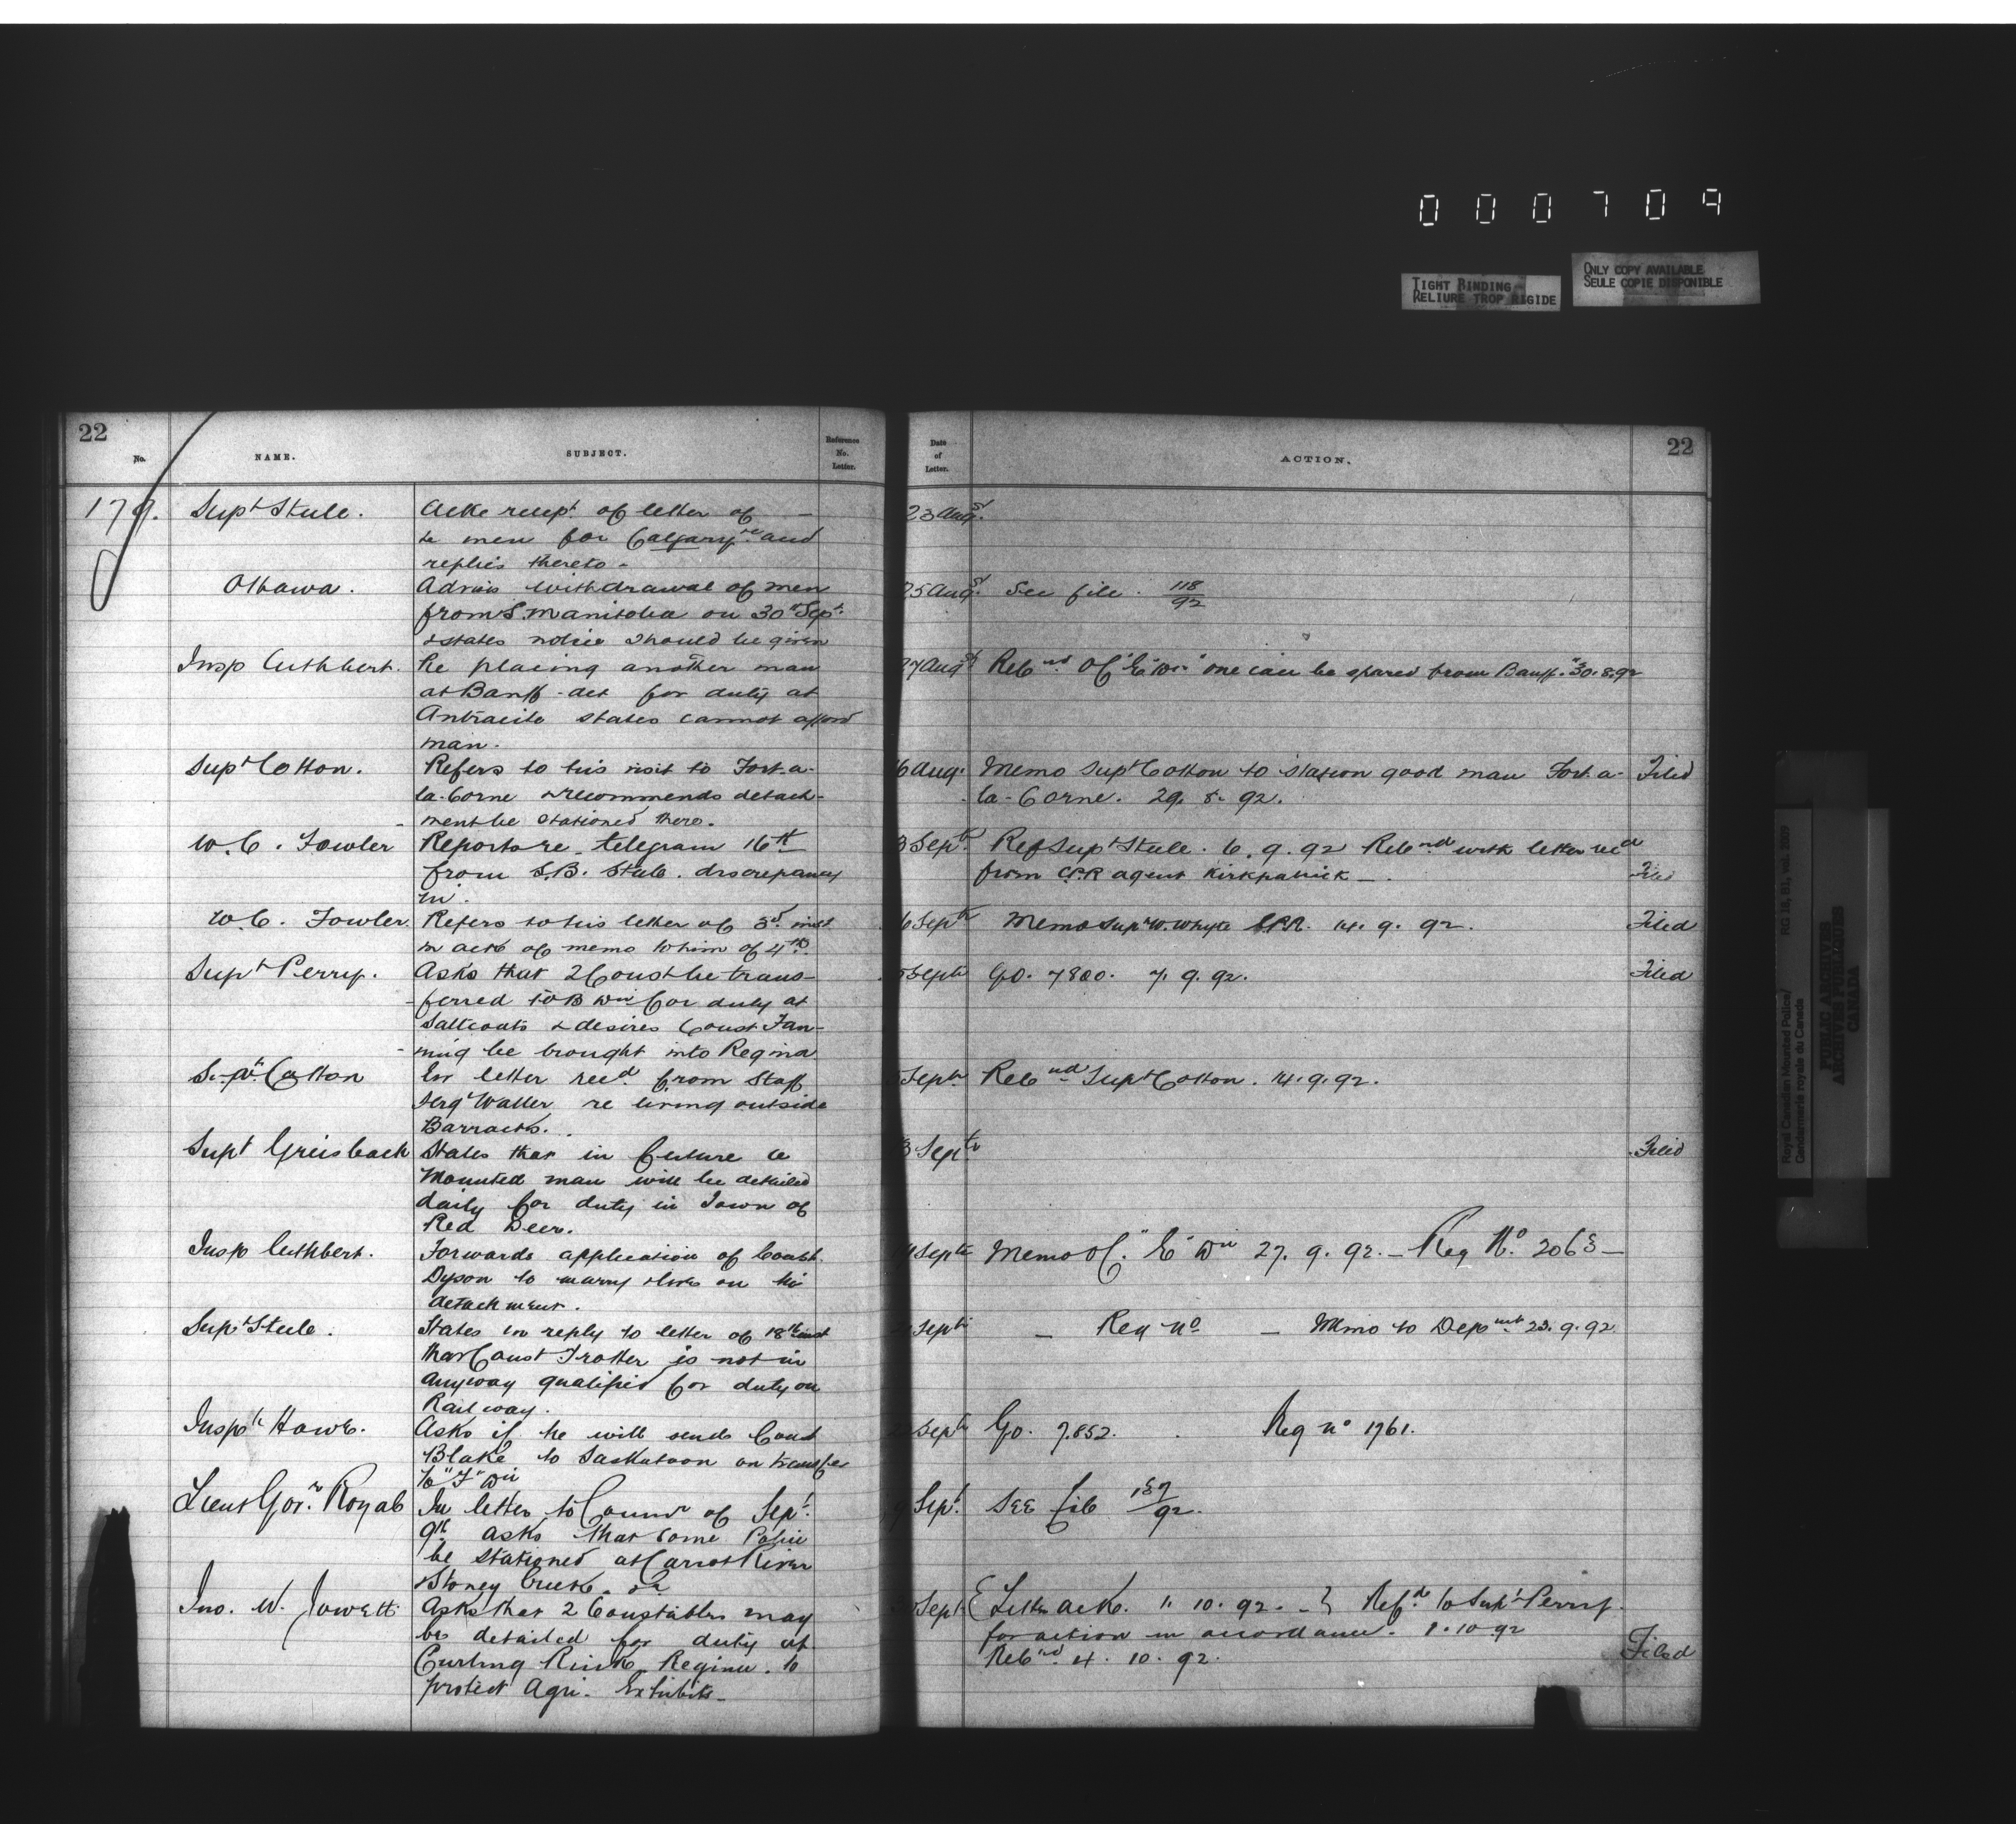 000709
TIGHT BINDING
RELIURE TROP RIGIDE
ONLY COPY AVAILABLE
SEULE COPIE DISPONIBLE
22
No.
NAME.
SUBJECT.
Reference
No.
Letter.
Date
of
Letter.
ACTION.
22
179. Supt Steele. Ackg receipt of letter of — 23 Augst
re men for Calgary and
replies thereto -
Ottawa. Advis withdrawal of men 25 Augst See file. 118/92
from S. Manitoba on 30th Sept
& states notice should be given
Insp Cuthbert. Re placing another man 27 Augst Retnd OC "E" Dn "one can be spared from Banff." 30.8.92
at Banff - det for duty at
Antracite states cannot afford
man.
Supt Cotton. Refers to his visit to Fort-a- 6 Aug. Memo Supt Cotton to station good man Fort-a- Filed
la-Corne & recommends detach- la-Corne. 29. 8. 92.
ment be stationed there.
W.C. Fowler Reports re telegram 16th 3 Sept Ref Supt Steele. 6. 9. 92 Retnd with letter recd
from S.B. Steele. discrepancy from C.P.R agent Kirkpatrick — Filed
in.
W.C. Fowler. Refers to his letter of 3rd inst 6 Septr Memo Supt W. Whyte C.P.R. 14. 9. 92. Filed
in ack of memo to him of 4th
Supt Perry. Asks that 2 Const be trans- 5 Septr GO. 7800. 7. 9. 92. Filed
ferred to B Dn for duty at
Saltcoats & desires Const Fan-
ning be brought into Regina
Supt Cotton In letter recd from Staff Septr Retnd Supt Cotton. 14.9.92.
Sergt Waller re living outside
Barracks.
Supt Greisbach States that in future a 3 Septr Filed
Mounted man will be detailed
daily for duty in Town of
Red Deer.
Insp Cuthbert. Forwards application of Const. Septr Memo OC. "E" Dn 27. 9. 92. — Reg No. 2063 —
Dyson to marry & live on his
detachment.
Supt Steele. States in reply to letter of 18th inst Septr — Reg No — Memo to Depmt 23. 9. 92
that Const Trotter is not in
anyway qualified for duty on
Railway.
Inspr Howe. Asks if he will send Const Septr GO. 7.852. Reg No 1761.
Blake to Saskatoon on transfer
to "F" Dn
Lieut Gor. Royal In letter to Commr of Sept Sept. See file 187/92.
9th asks that some Police
be stationed at Carrot River
& Stoney Creek.
Jno. W. Jowett Asks that 2 Constables may Sept. {Letter ack. 1. 10. 92. —} Refd to Supt Perry.
be detailed for duty at for action in accordance. 1.10.92
Curling Rink Regina. to Retnd 4. 10. 92. Filed
protect Agri. Exhibits —
Royal Canadian Mounted Police/ RG 18, B1, vol.
Gendarmerie royale du Canada
PUBLIC ARCHIVES
ARCHIVES PUBLIQUES
CANADA